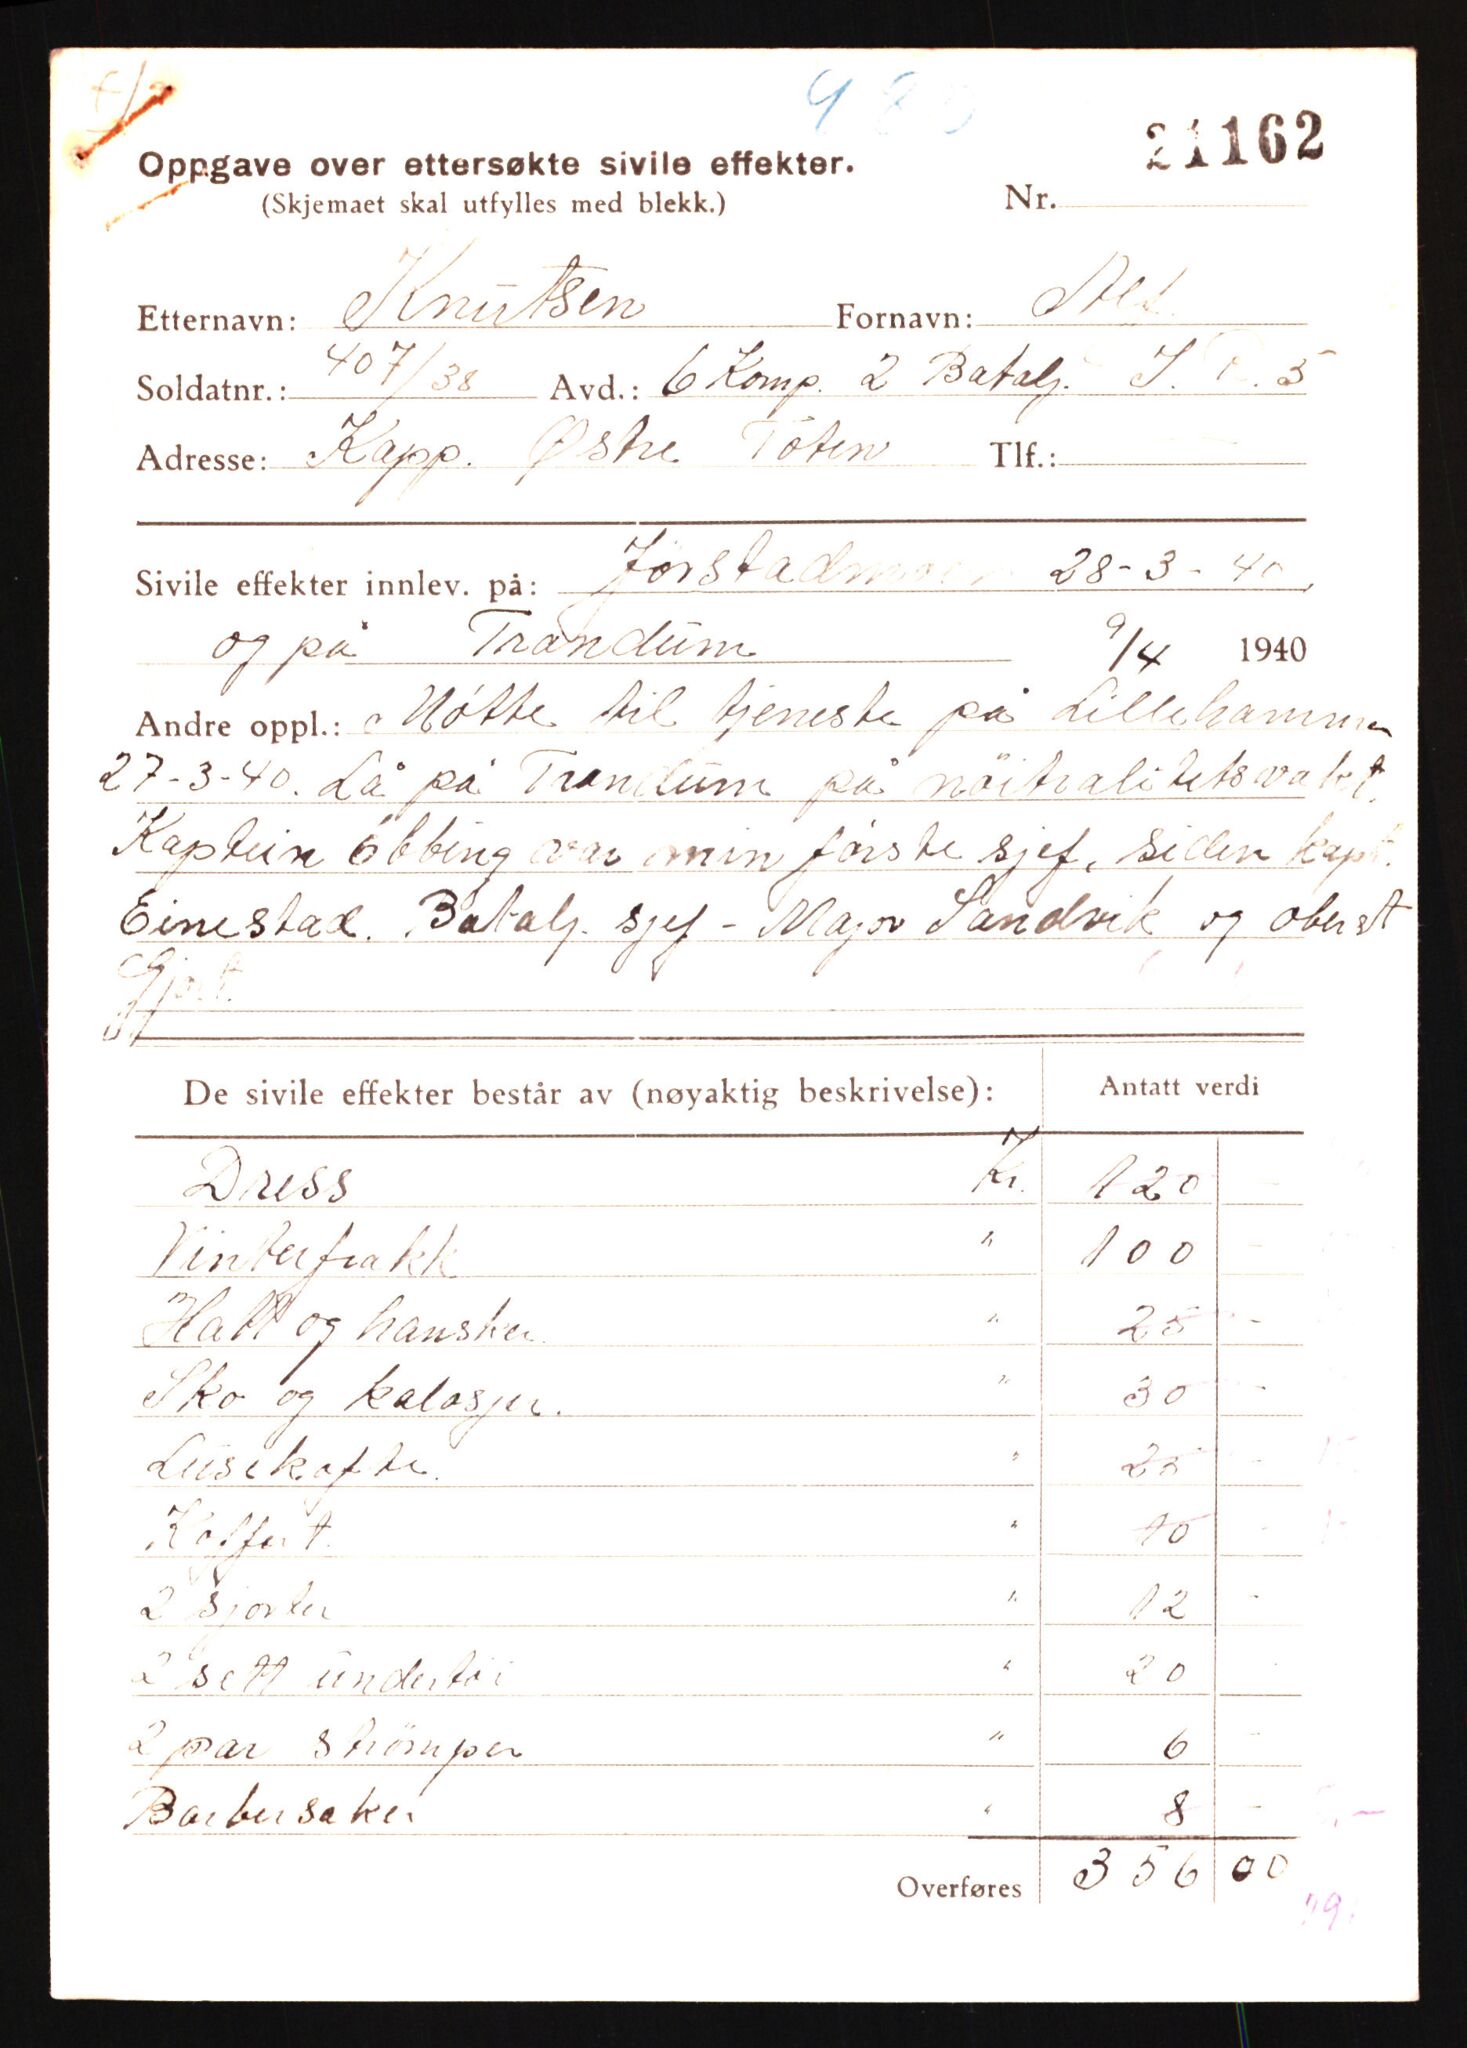 21162
Oppgave over ettersøkte sivile effekter.
(Skjemaet skal utfylles med blekk.) Nr.
Etternavn: Knutsen Fornavn: Alf
Soldatnr.: 407/38 Avd.: 6 Komp. 2 Batalj. I. R. 5
Adresse: Kapp. Østre Toten Tlf.: —
Sivile effekter innlev. på: Jørstadmoen 28-3-40
og på Trandum 9/4 1940
Andre oppl.: Møtte til tjeneste på Lillehammer
27-3-40. Lå på Trandum på nøitralitetsvakt.
Kaptein Ebbing var min første sjef, siden kapt.
Einestad. Batalj. sjef - Major Sandvik og oberst
De sivile effekter består av (nøyaktig beskrivelse): Antatt verdi
Dress Kr. 120 -
Vinterfrakk " 100 -
Hatt og hansker. " 25 -
Sko og kalosjer. " 30 -
Lusekofte. " 25 -
Koffert. " 10 -
2 sjorter " 12 -
2 sett undertøi " 20 -
2 par strömper " 6 -
Barbersaker " 8 -
Overføres 356 00